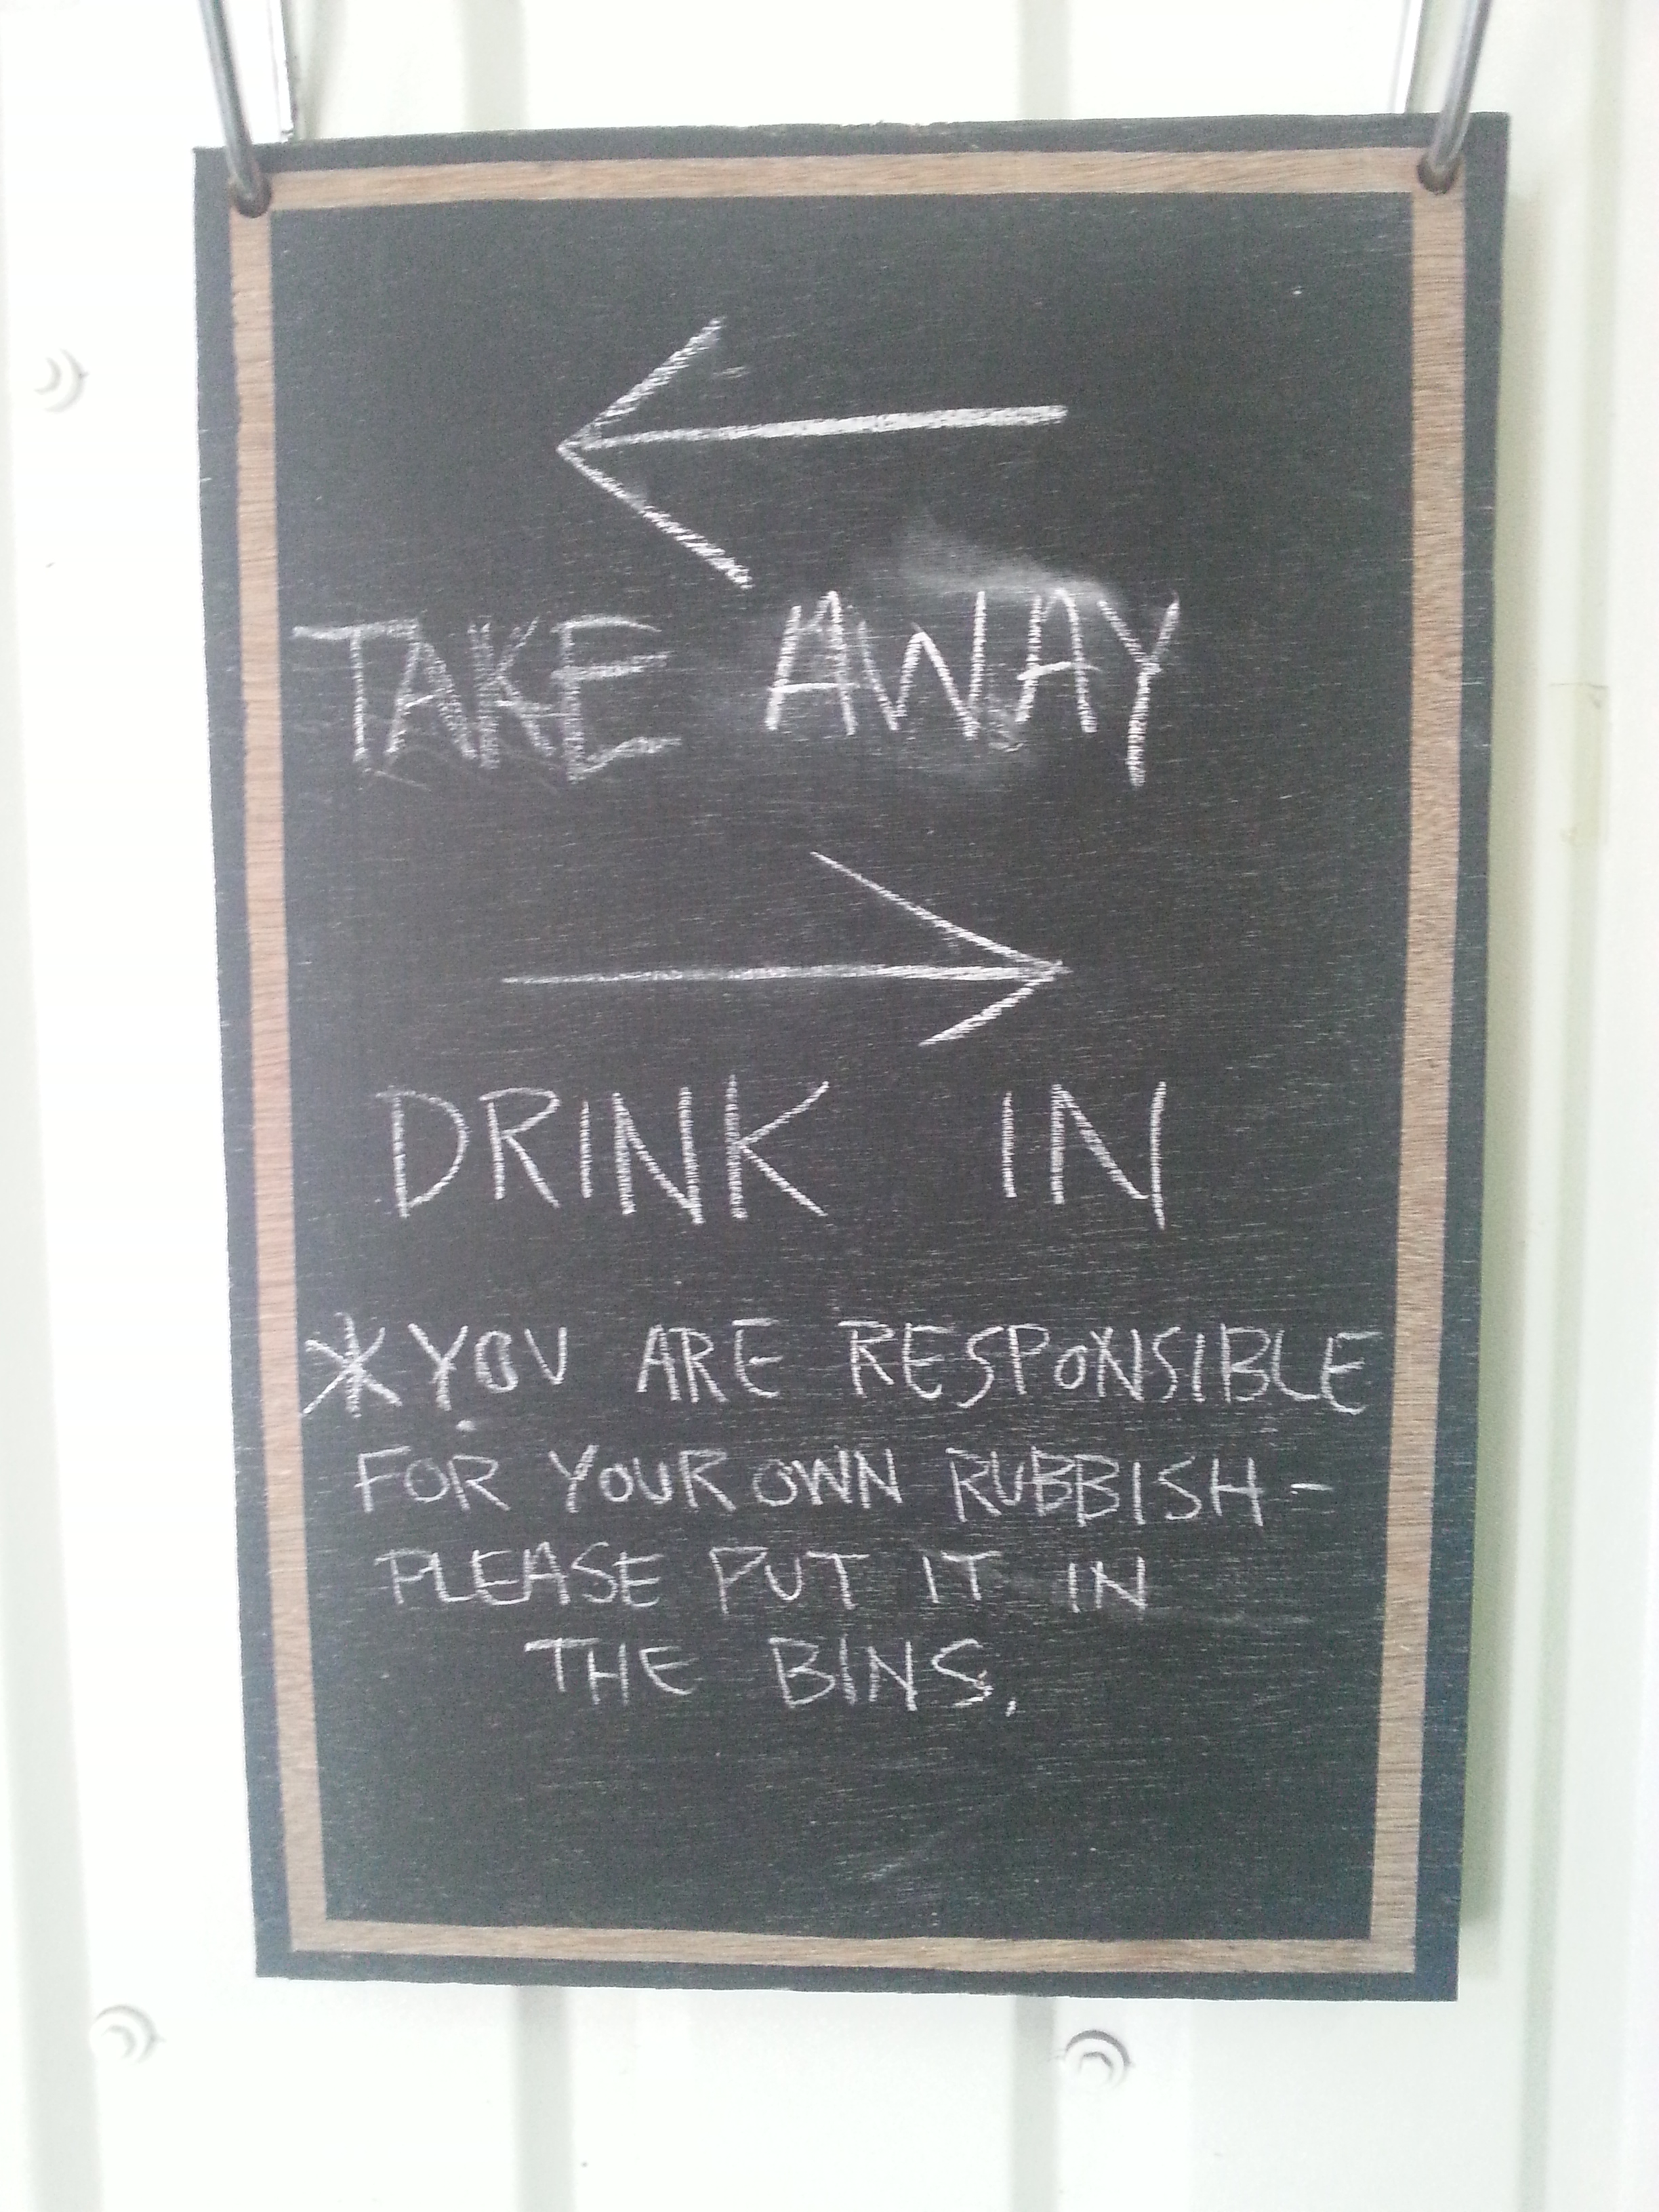 ←
TAKE AWAY
→
DRINK IN
*YOU ARE RESPONSIBLE
FOR YOUR OWN RUBBISH-
PLEASE PUT IT IN
THE BINS.